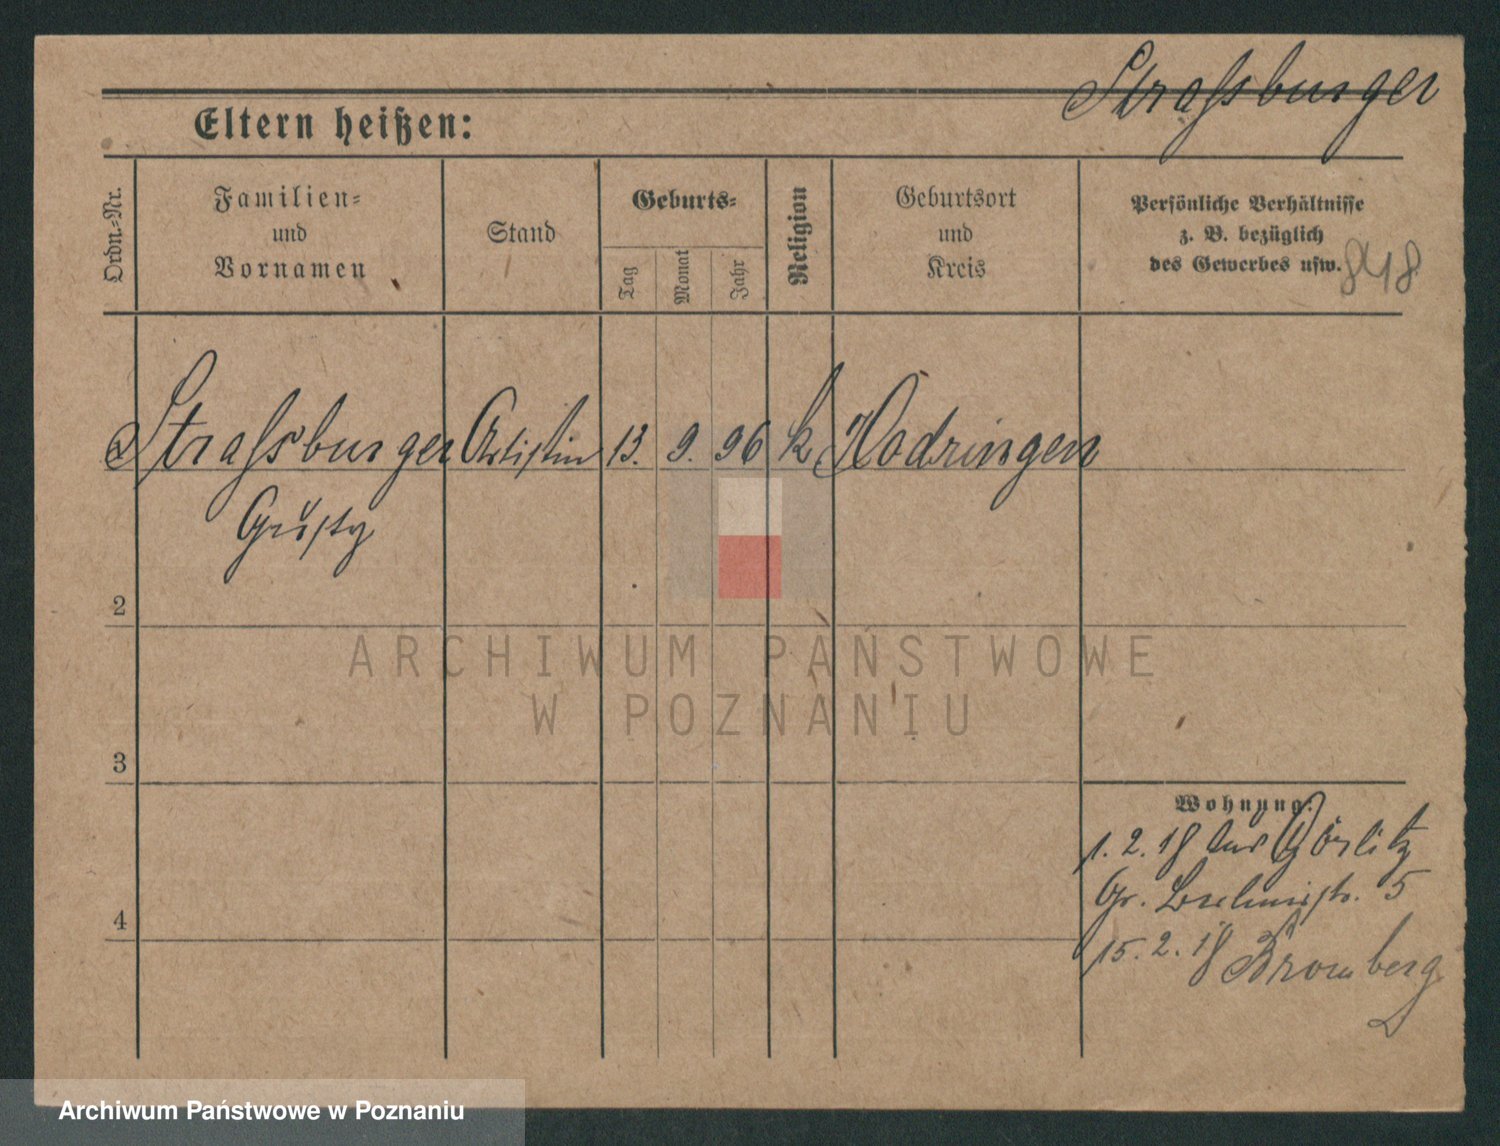 Straßburger
Eltern heißen:
Ordn.-Nr.
Familien-
und
Vornamen
Stand
Geburts-
Tag
Monat
Jahr
Religion
Geburtsort
und
Kreis
Persönliche Verhältnisse
z. B. bezüglich
des Gewerbes usw.
Straßburger Artistin 13. 9. 96 k
Gusty
2
3
4
Wohnung:
1. 2. 18 aus Görlitz
Gr. 5
15. 2. 18 Bromberg
ARCHIWUM PAŃSTWOWE
W POZNANIU
Archiwum Państwowe w Poznaniu